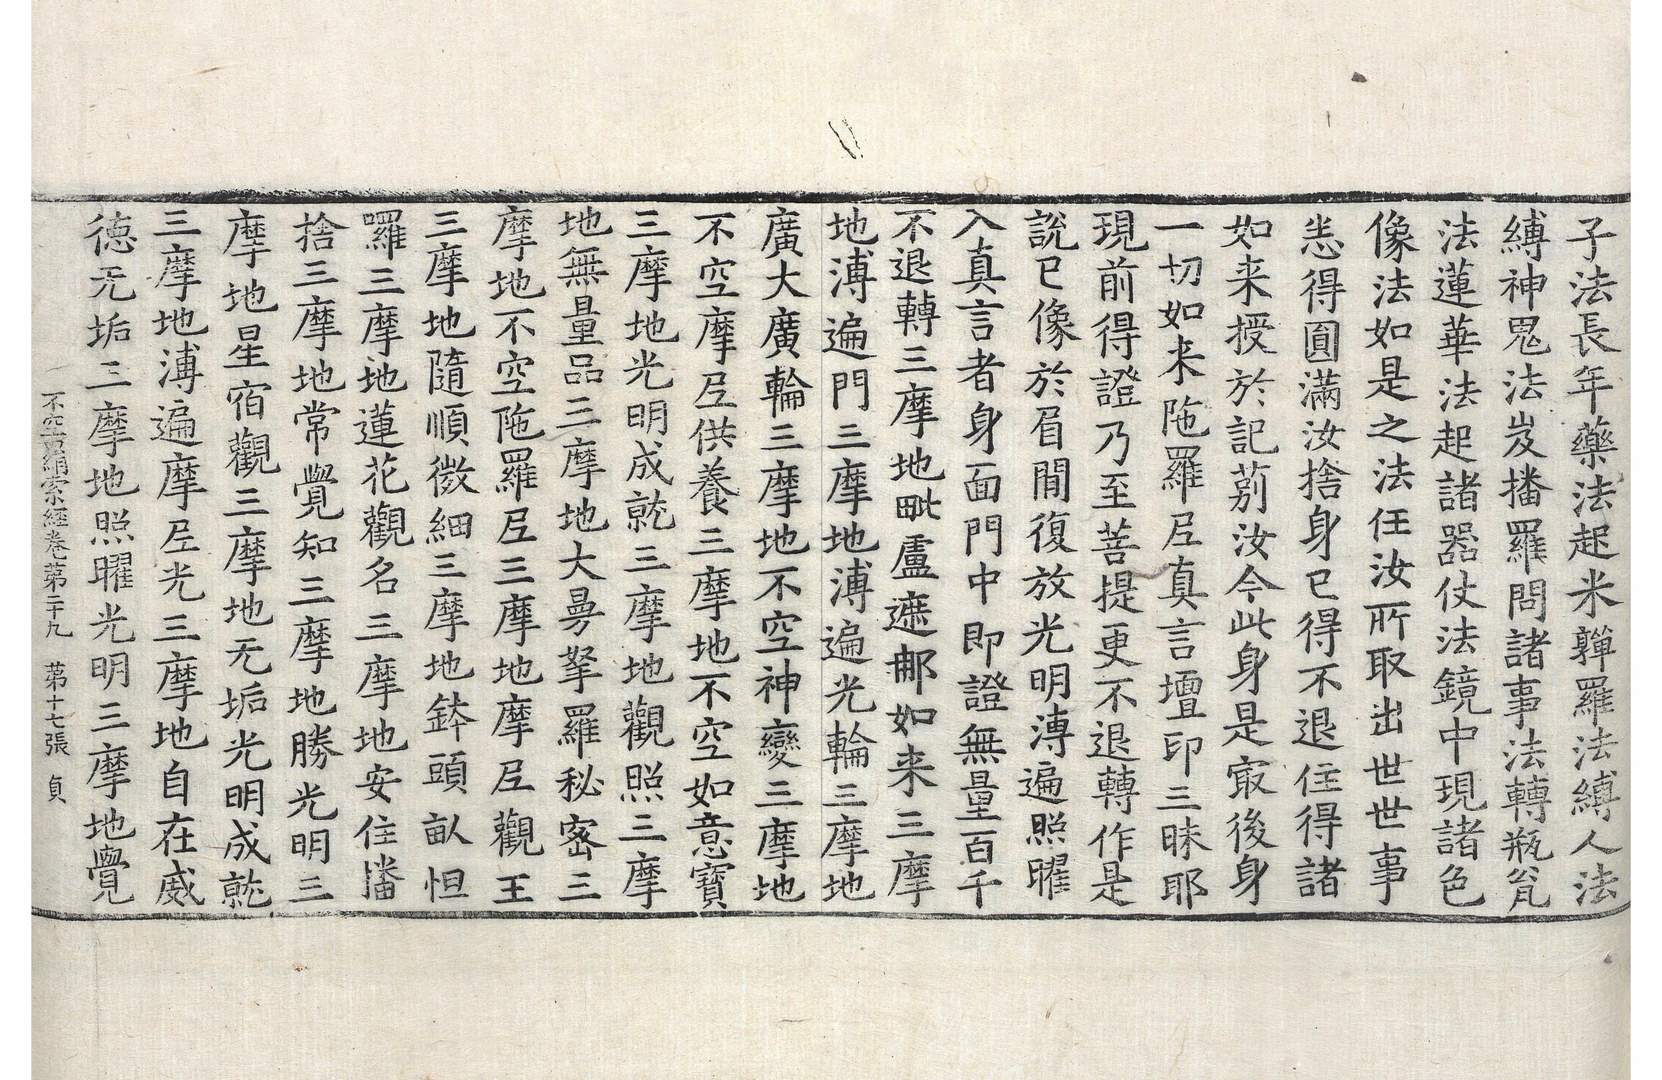 子法長年藥法起米嚲羅法縛人法
縛神鬼法岌播羅問諸事法轉瓶瓮
法蓮華法起諸器仗法鏡中現諸色
像法如是之法任汝所取出世世事
恙得圓滿汝捨身已得不退住得諸
如来授於記莂汝今此身是㝡後身
一切如来陁羅𡰱真言壇印三昧耶
現前得證乃至菩提更不退轉作是
說已像於眉間復放光明溥遍照曜
入真言者身面門中即證無量百千
不退轉三摩地毗盧遮䣘如来三摩
地溥遍門三摩地溥遍光輪三摩地
廣大廣輪三摩地不空神變三摩地
不空摩𡰱供養三摩地不空如意寶
三摩地光明成就三摩地觀照三摩
地無量品三摩地大曼拏羅秘密三
摩地不空陁羅𡰱三摩地摩𡰱觀王
三摩地隨順微細三摩地鉢頭畝怛
囉三摩地蓮花觀名三摩地安住旛
捨三摩地常覺知三摩地勝光明三
摩地星宿觀三摩地无垢光明成就
三摩地溥遍摩𡰱光三摩地自在威
德无垢三摩地照曜光明三摩地覺
不空羂索經卷第二十九 第十七張 貞